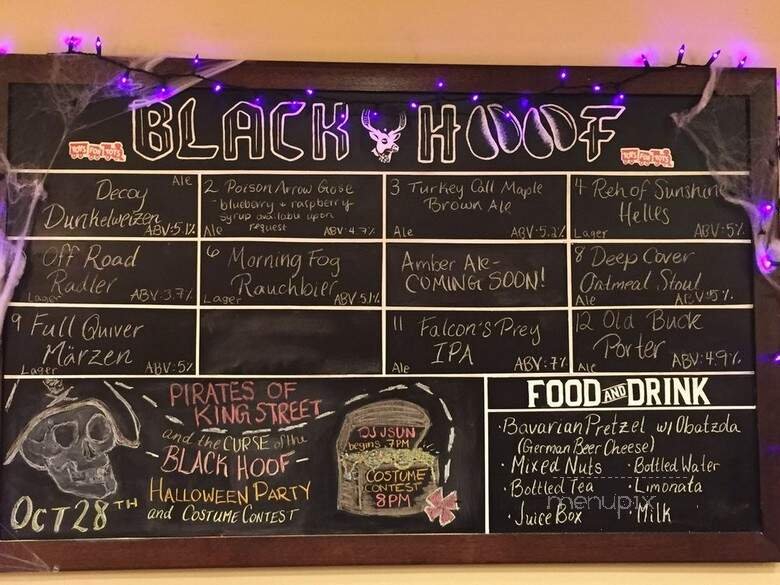 BLACK HOOF
TOYS FOR TOTS
TOYS FOR TOTS
Ale
Decoy
Dunkelweizen
ABV:5.1%
2 Poison Arrow Gose
- blueberry + raspberry
syrup available upon
request
Ale ABV:4.7%
3 Turkey Call Maple
Brown Ale
Ale ABV:5.2%
4 Reh of Sunshine
Helles
Lager ABV:5%
Off Road
Radler
Lager ABV:3.7%
6 Morning Fog
Rauchbier
Lager ABV 5.1%
Amber Ale-
COMING SOON!
8 Deep Cover
Oatmeal Stout
Ale ABV:5%
9 Full Quiver
Märzen
Lager ABV:5%
11 Falcon's Prey
IPA
Ale ABV:7%
12 Old Buck
Porter
Ale ABV:4.9%
PIRATES OF
KING STREET
and the CURSE of the
BLACK HOOF
HALLOWEEN PARTY
and COSTUME CONTEST
OCT 28TH
DJ JSUN
begins 7PM
COSTUME
CONTEST
8PM
FOOD AND DRINK
· Bavarian Pretzel w/ Obatzda
(German Beer Cheese)
· Mixed Nuts · Bottled Water
· Bottled Tea · Limonata
· Juice Box · Milk
menupix